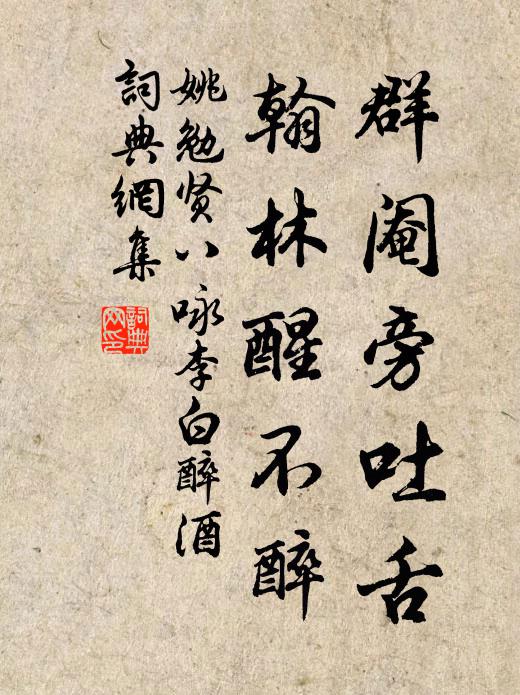 群阉旁吐舌
翰林醒不醉
姚勉贤八咏李白醉酒
詞典網集
詞典网印